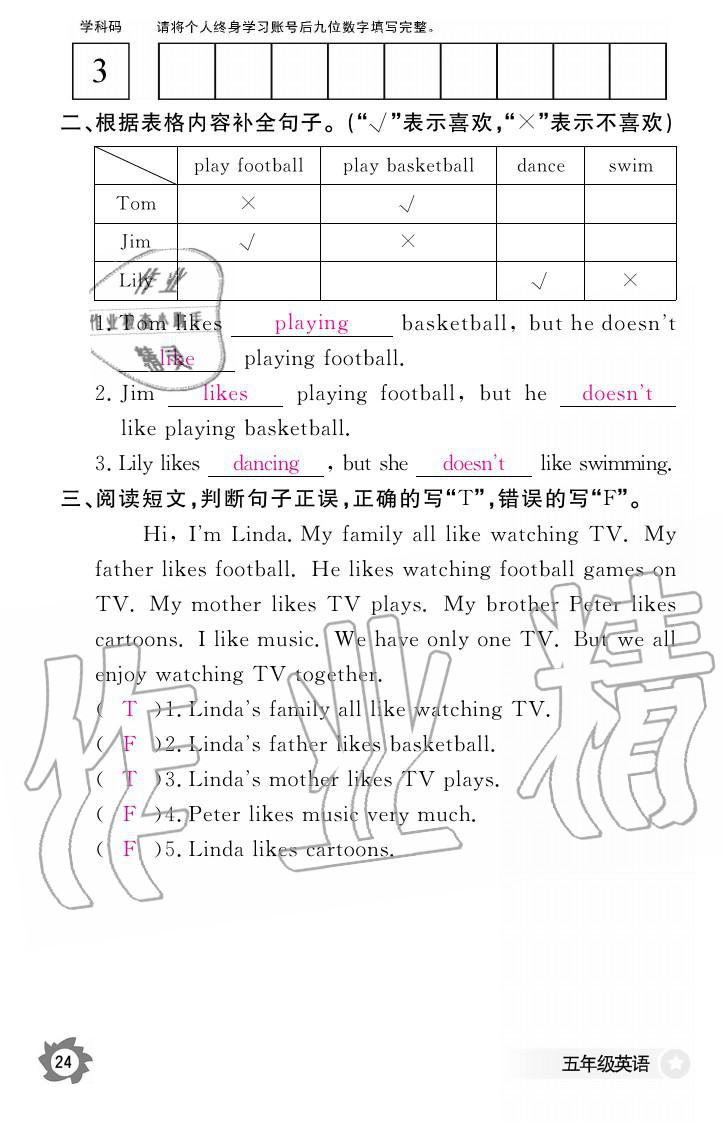 学科码 请将个人终身学习账号后九位数字填写完整。
3
二、根据表格内容补全句子。(“√”表示喜欢,“×”表示不喜欢)
play football play basketball dance swim
Tom × √
Jim √ ×
Lily √ ×
1. Tom likes playing basketball, but he doesn't
like playing football.
2. Jim likes playing football, but he doesn't
like playing basketball.
3. Lily likes dancing , but she doesn't like swimming.
三、阅读短文,判断句子正误,正确的写“T”,错误的写“F”。
Hi, I'm Linda. My family all like watching TV. My
father likes football. He likes watching football games on
TV. My mother likes TV plays. My brother Peter likes
cartoons. I like music. We have only one TV. But we all
enjoy watching TV together.
( T )1. Linda's family all like watching TV.
( F )2. Linda's father likes basketball.
( T )3. Linda's mother likes TV plays.
( F )4. Peter likes music very much.
( F )5. Linda likes cartoons.
作业精
24
五年级英语